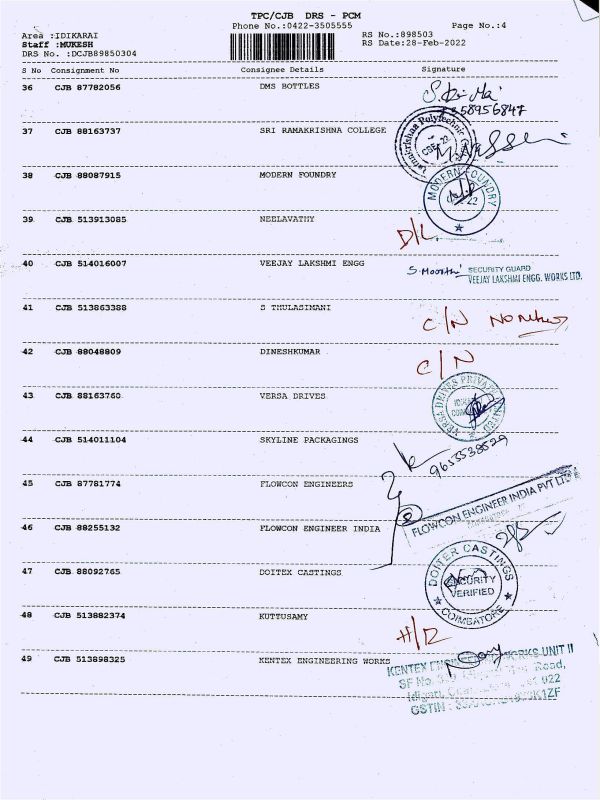 TPC/CJB DRS - PCM
Phone No.:0422-3505555 Page No.:4
Area :IDIKARAI RS No.:898503
Staff :MUKESH RS Date:28-Feb-2022
DRS No. :DCJB89850304
S No Consignment No Consignee Details Signature
36 CJB 87782056 DMS BOTTLES
37 CJB 88163737 SRI RAMAKRISHNA COLLEGE
Polytechnic
38 CJB 88087915 MODERN FOUNDRY
MODERN FOUNDRY
39 CJB 513913085 NEELAVATHY
D/L
40 CJB 514016007 VEEJAY LAKSHMI ENGG S. Moorthi SECURITY GUARD
VEEJAY LAKSHMI ENGG. WORKS LTD.
41 CJB 513863388 S THULASIMANI
C/N
42 CJB 88048809 DINESHKUMAR
C/N
43 CJB 88163760 VERSA DRIVES
VERSA DRIVES PRIVATE LIMITED
44 CJB 514011104 SKYLINE PACKAGINGS
9655538529
45 CJB 87781774 FLOWCON ENGINEERS
FLOWCON ENGINEER INDIA PVT LTD
46 CJB 88255132 FLOWCON ENGINEER INDIA
47 CJB 88092765 DOITEX CASTINGS
DOITER CASTINGS
SECURITY
VERIFIED
COIMBATORE
48 CJB 513882374 KUTTUSAMY
49 CJB 513898325 KENTEX ENGINEERING WORKS
KENTEX WORKS UNIT II
SF No. Road,
022
GSTIN :